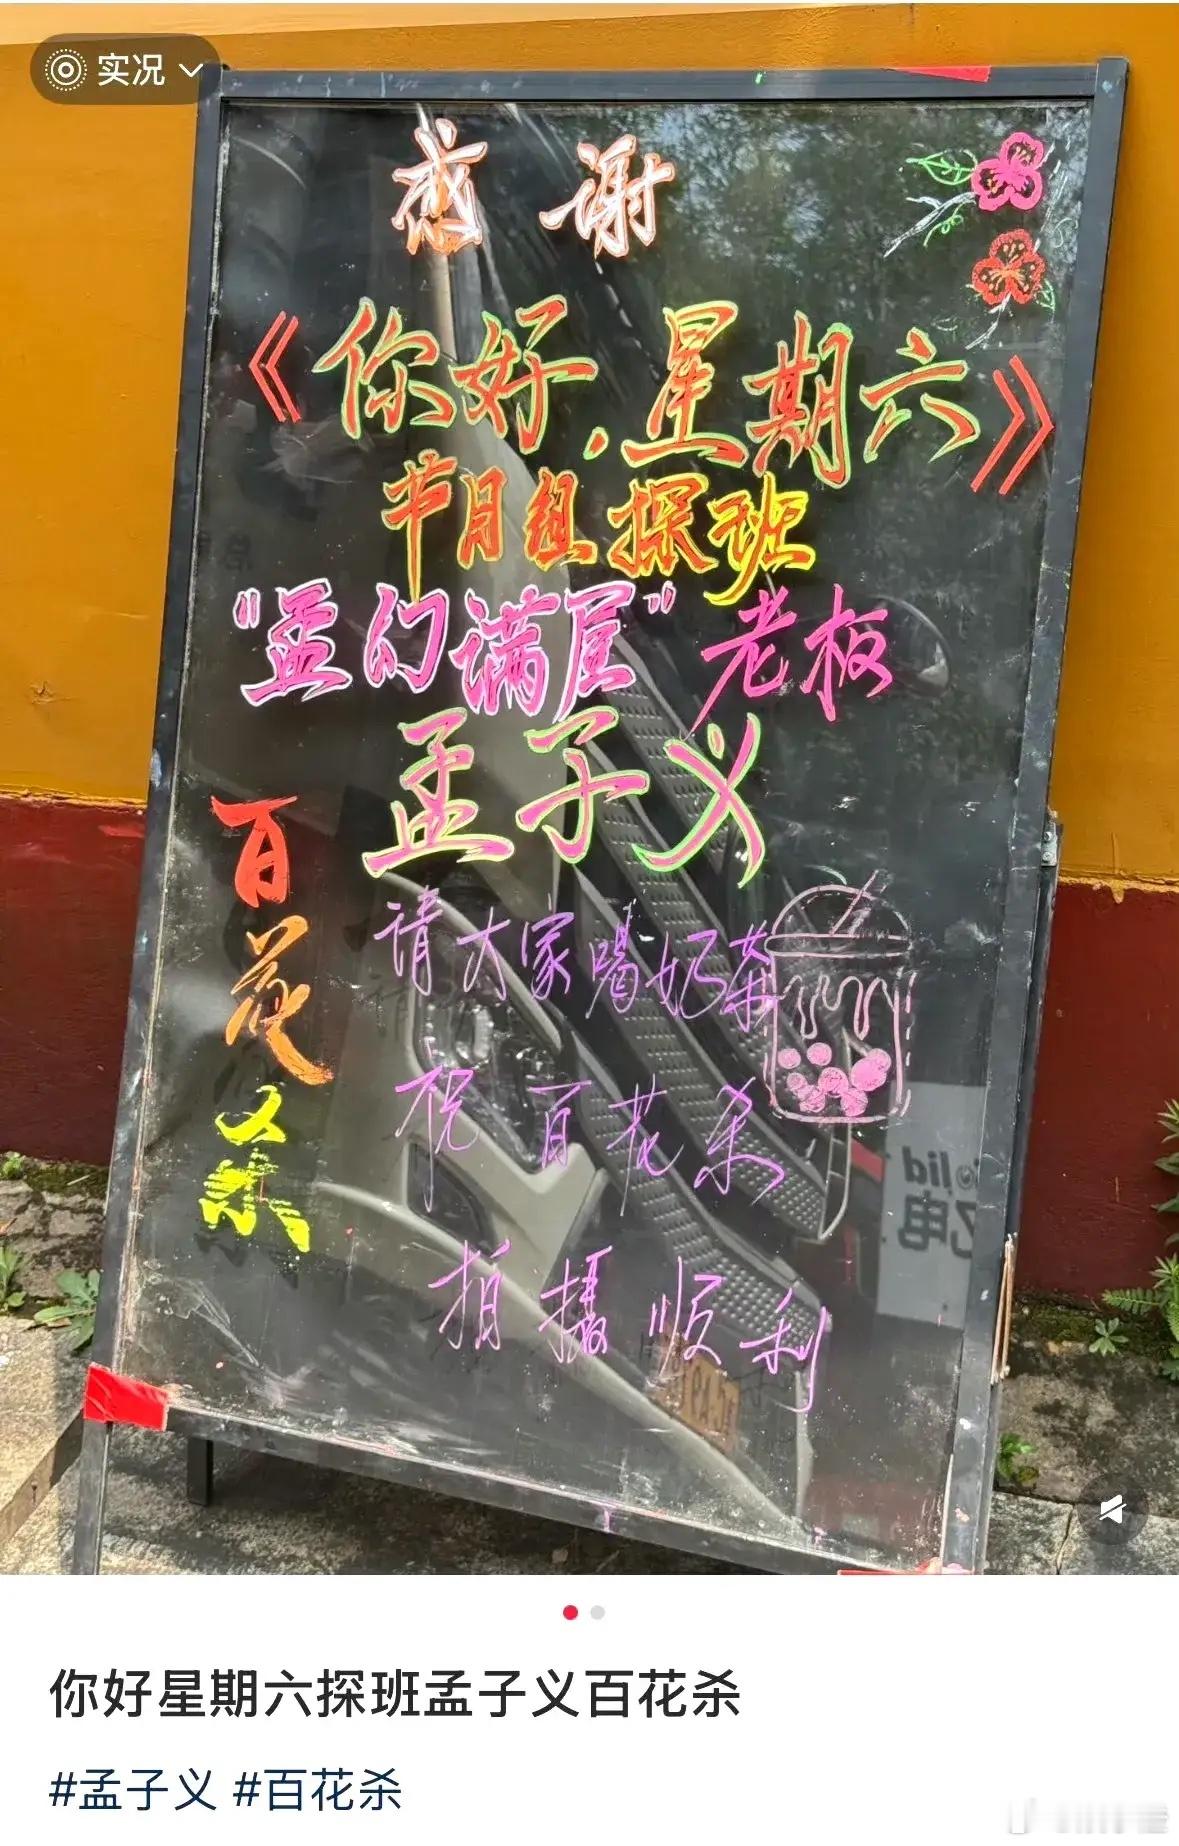 实况
感谢
《你好.星期六》
节目组探班
"孟幻满屋"老板
孟子义
百花杀
请大家喝奶茶
祝百花杀
拍摄顺利
你好星期六探班孟子义百花杀
#孟子义 #百花杀